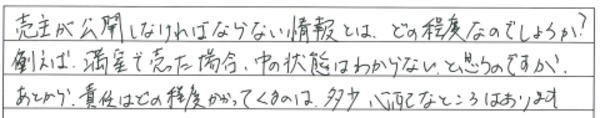 売主が公開しなければならない情報とは、どの程度なのでしょうか?
例えば、満室で売った場合、中の状態はわからないと思うのですが、
あとから、責任はどの程度かかってくるのは、多少心配なところはあります